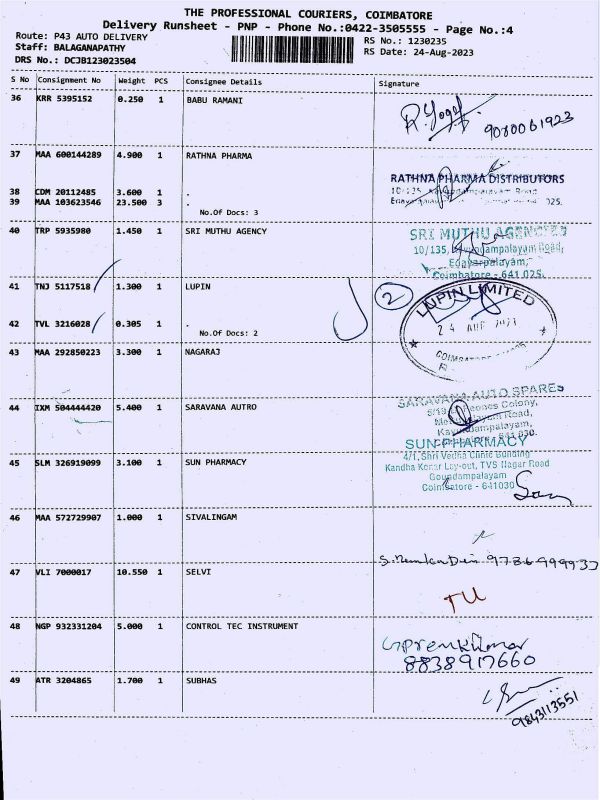 THE PROFESSIONAL COURIERS, COIMBATORE
Delivery Runsheet - PNP - Phone No.:0422-3505555 - Page No.:4
Route: P43 AUTO DELIVERY
Staff: BALAGANAPATHY
DRS No.: DCJB123023504
RS No.: 1230235
RS Date: 24-Aug-2023
S No Consignment No Weight PCS Consignee Details Signature
36 KRR 5395152 0.250 1 BABU RAMANI
9080061923
37 MAA 600144289 4.900 1 RATHNA PHARMA
RATHNA PHARMA DISTRIBUTORS
38 CDM 20112485 3.600 1 .
39 MAA 103623546 23.500 3 .
No.Of Docs: 3
40 TRP 5935980 1.450 1 SRI MUTHU AGENCY
SRI MUTHU AGENCIES
10/135, Goundampalayam Road,
Edayarpalayam,
Coimbatore - 641 025.
41 TNJ 5117518 1.300 1 LUPIN
2
LUPIN LIMITED
24 AUG 2023
42 TVL 3216028 0.305 1 .
No.Of Docs: 2
43 MAA 292850223 3.300 1 NAGARAJ
44 IXM 504444420 5.400 1 SARAVANA AUTRO
SARAVANA AUTO SPARES
Colony,
Road,
45 SLM 326919099 3.100 1 SUN PHARMACY
SUN PHARMACY
4/1, Shri Vedha Clinic Building
Kandha Konar Lay-out, TVS Nagar Road
Goundampalayam
Coimbatore - 641030
46 MAA 572729907 1.000 1 SIVALINGAM
47 VLI 7000017 10.550 1 SELVI
TU
48 NGP 932331204 5.000 1 CONTROL TEC INSTRUMENT
Premkumar
8838917660
49 ATR 3204865 1.700 1 SUBHAS
9843113551